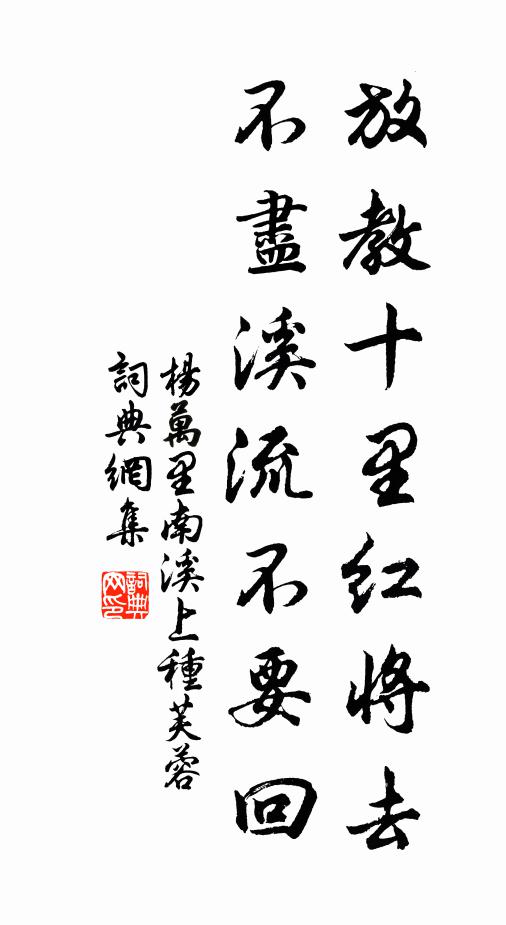 放教十里红將去
不盡溪流不要回
楊萬里南溪上種芙蓉
詞典網集
詞典
网印